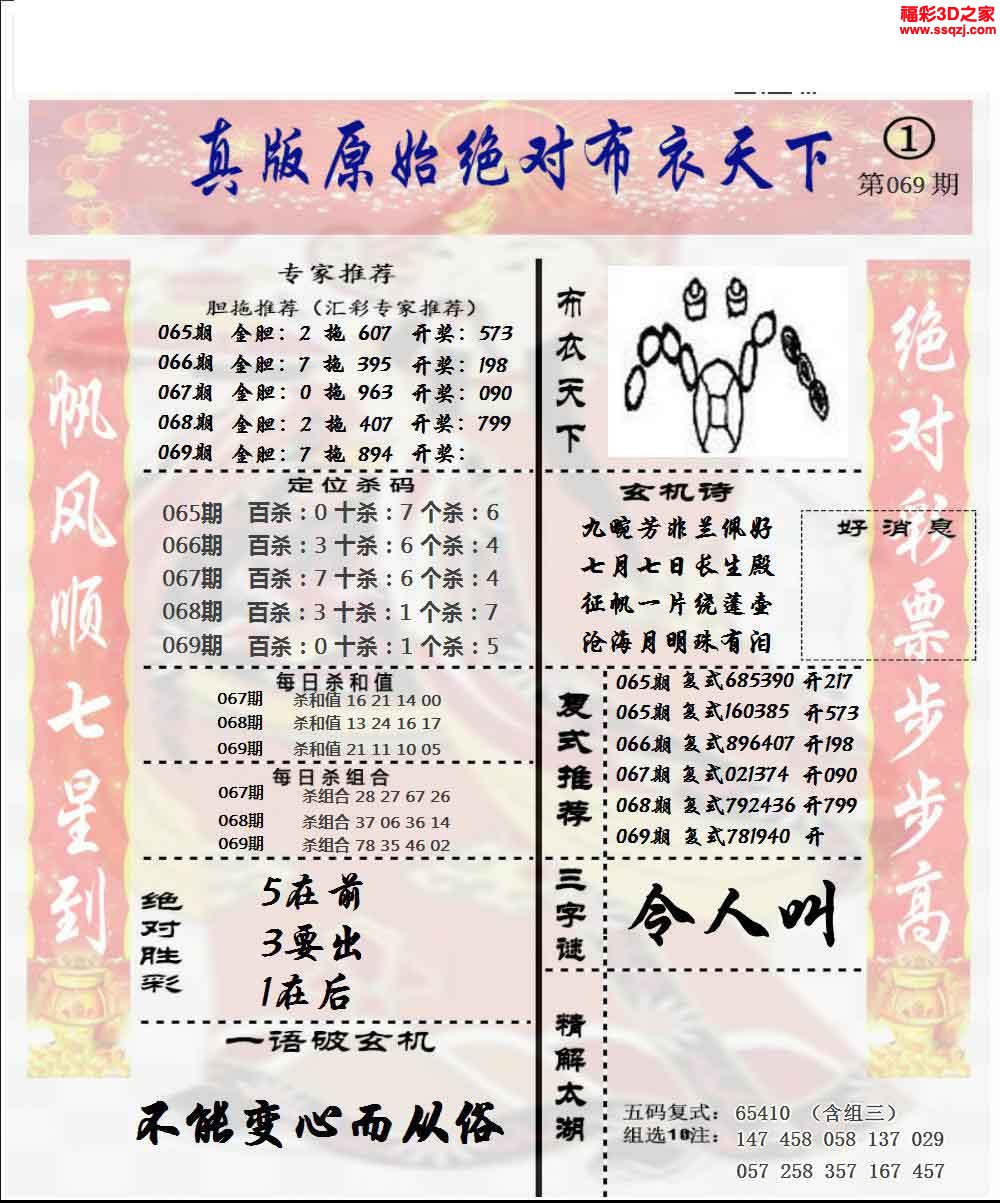 福彩3D之家
www.ssqzj.com
真版原始绝对布衣天下
①
第069期
一帆风顺七星到
专家推荐
胆拖推荐（汇彩专家推荐）
065期 金胆：2 拖 607 开奖：573
066期 金胆：7 拖 395 开奖：198
067期 金胆：0 拖 963 开奖：090
068期 金胆：2 拖 407 开奖：799
069期 金胆：7 拖 894 开奖：
定位杀码
065期 百杀：0 十杀：7 个杀：6
066期 百杀：3 十杀：6 个杀：4
067期 百杀：7 十杀：6 个杀：4
068期 百杀：3 十杀：1 个杀：7
069期 百杀：0 十杀：1 个杀：5
每日杀和值
067期 杀和值 16 21 14 00
068期 杀和值 13 24 16 17
069期 杀和值 21 11 10 05
每日杀组合
067期 杀组合 28 27 67 26
068期 杀组合 37 06 36 14
069期 杀组合 78 35 46 02
绝对胜彩
5在前
3要出
1在后
一语破玄机
不能变心而从俗
布衣天下
玄机诗
九畹芳菲兰佩好
七月七日长生殿
征帆一片绕蓬壶
沧海月明珠有泪
好消息
复式推荐
065期 复式685390 开217
065期 复式160385 开573
066期 复式896407 开198
067期 复式021374 开090
068期 复式792436 开799
069期 复式781940 开
三字谜
令人叫
精解太湖
五码复式： 65410 （含组三）
组选10注： 147 458 058 137 029
057 258 357 167 457
绝对彩票步步高